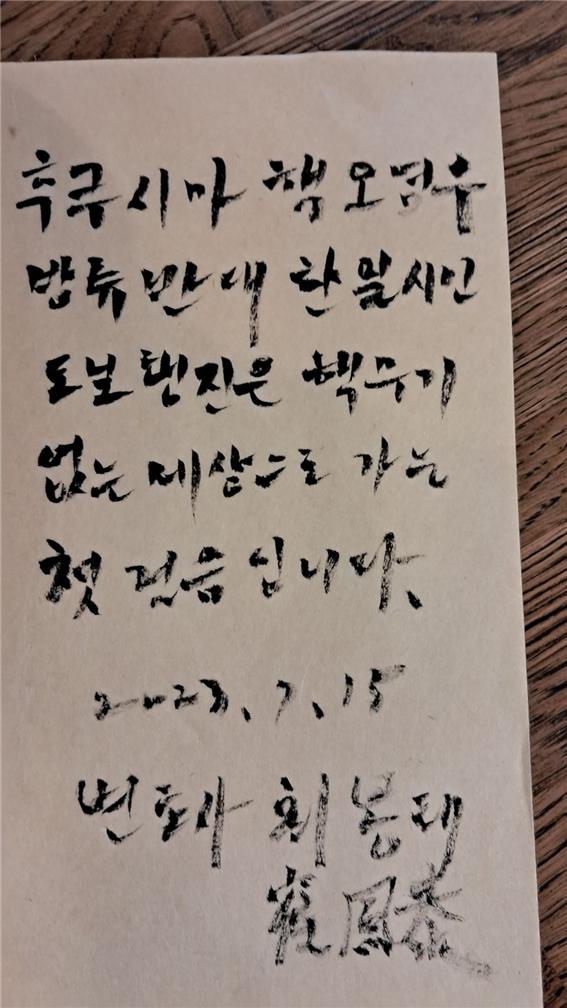 후쿠시마 핵 오염수
방류 반대 한일시민
도보행진은 핵무기
없는 세상으로 가는
첫 걸음입니다.
2023. 7. 15
변호사 최봉태
崔鳳泰